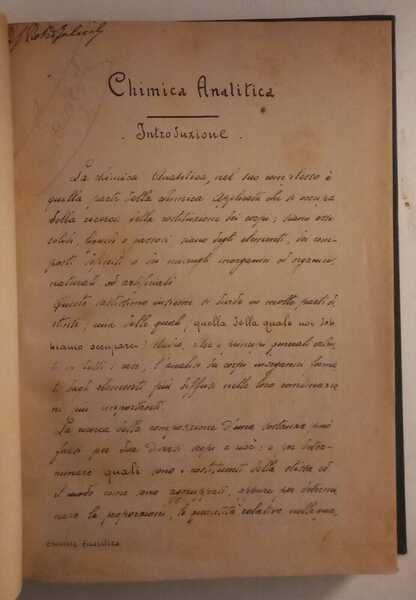 Chimica Analitica
Introduzione.
La chimica Analitica, nel suo complesso è
quella parte della chimica applicata che si occupa
della ricerca della costituzione dei corpi; siano essi
solidi, liquidi o gassosi; siano degli elementi, dei com-
posti definiti o dei miscugli inorganici od organici,
naturali od artificiali
Questo vastissimo insieme si divide in molte parti di
stinte, una delle quali, quella della quale noi dob
biamo occuparci: studia, oltre i principi generali
ti in tutti i casi, l'analisi dei corpi inorganici
ti dagli elementi più diffusi nelle loro combinazio
ni più importanti.
La ricerca della composizione d'una sostanza può
farsi per due diversi scopi e cioè: o per deter-
minare quali sono i costituenti della stessa ed
il modo come sono aggruppati, oppure per determi
nare le proporzioni, le quantità relative
Chimica Analitica